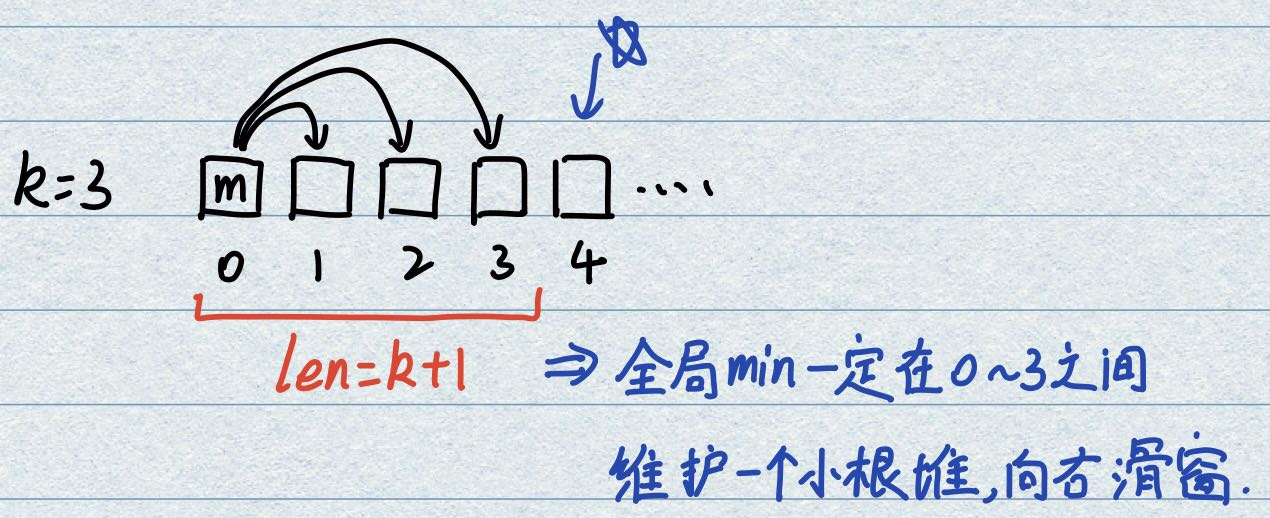 k=3 m ....
0 1 2 3 4
len=k+1 ⇒ 全局min一定在0~3之间
维护一个小根堆,向右滑窗.